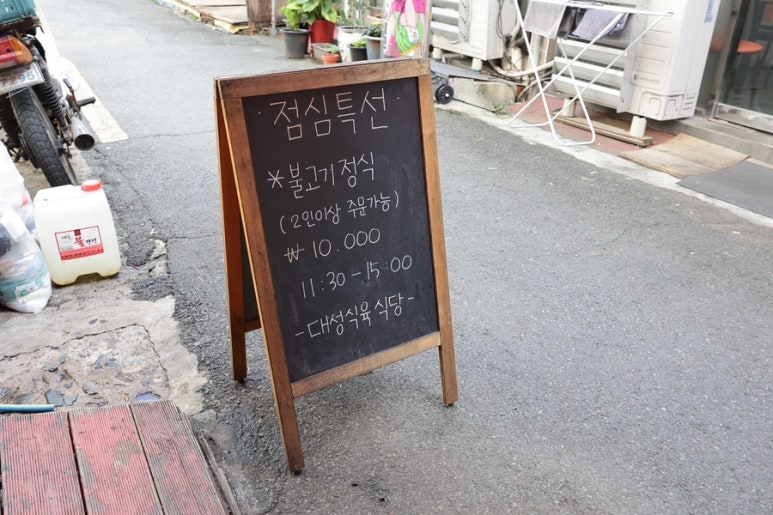 · 점심특선 ·
* 불고기 정식
(2인이상 주문가능)
₩ 10.000
11:30 - 15:00
- 대성식육식당 -